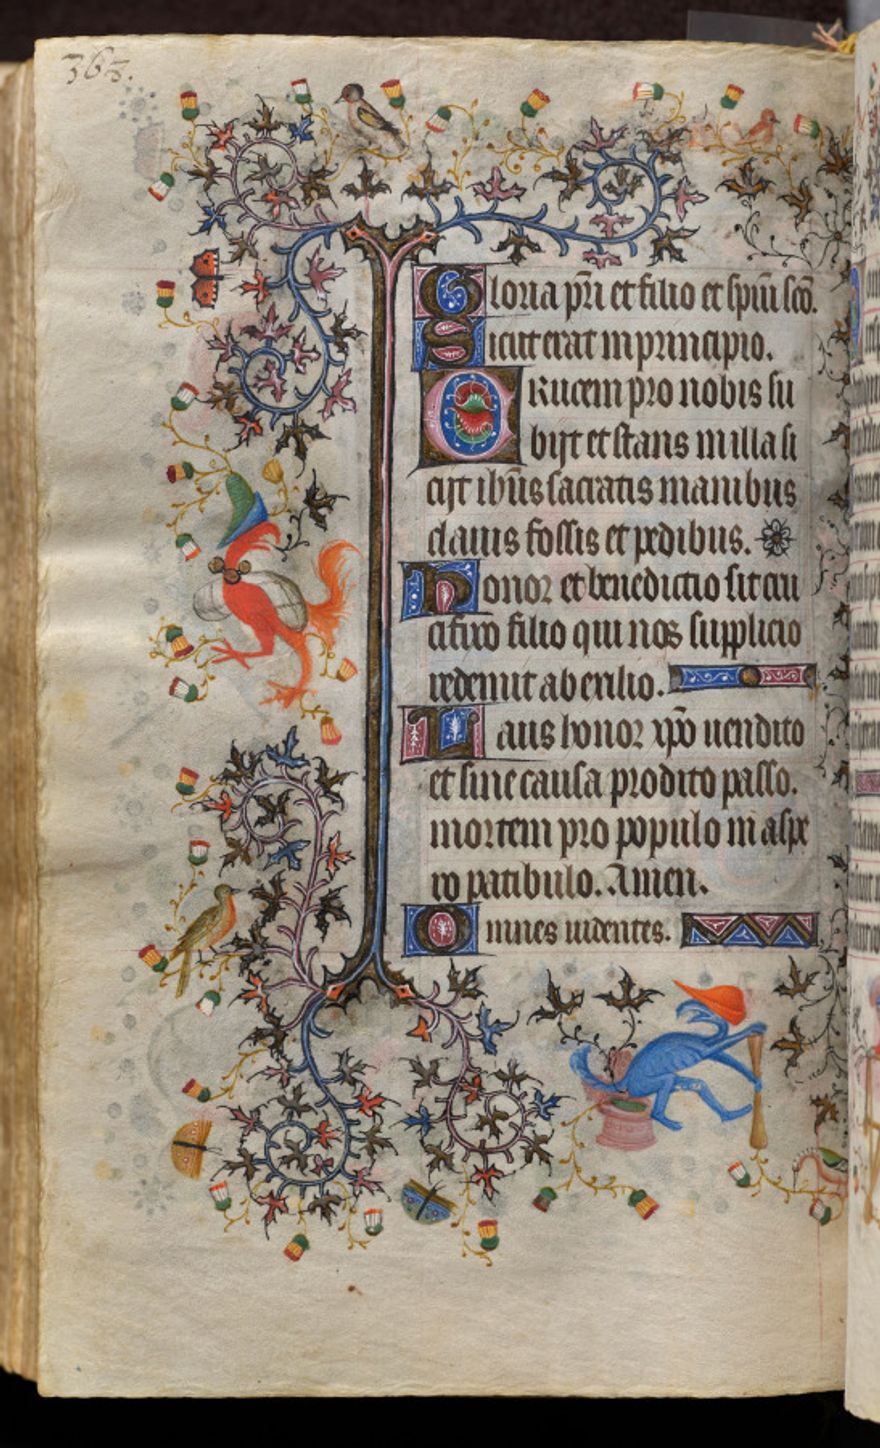 363.
Gloria pr̄i et filio et spiui sc̄o.
Sicut erat in principio.
CRucem pro nobis su
bijt et stans in illa si
cijt ih̄us sacratis manibus
clauis fossis et pedibus.
Honor et benedictio sit cru
cifixo filio qui nos supplicio
redemit ab exilio.
Laus honor xp̄o uendito
et sine causa prodito passo.
mortem pro populo in aspe
ro patibulo. Amen.
Omnes uidentes.